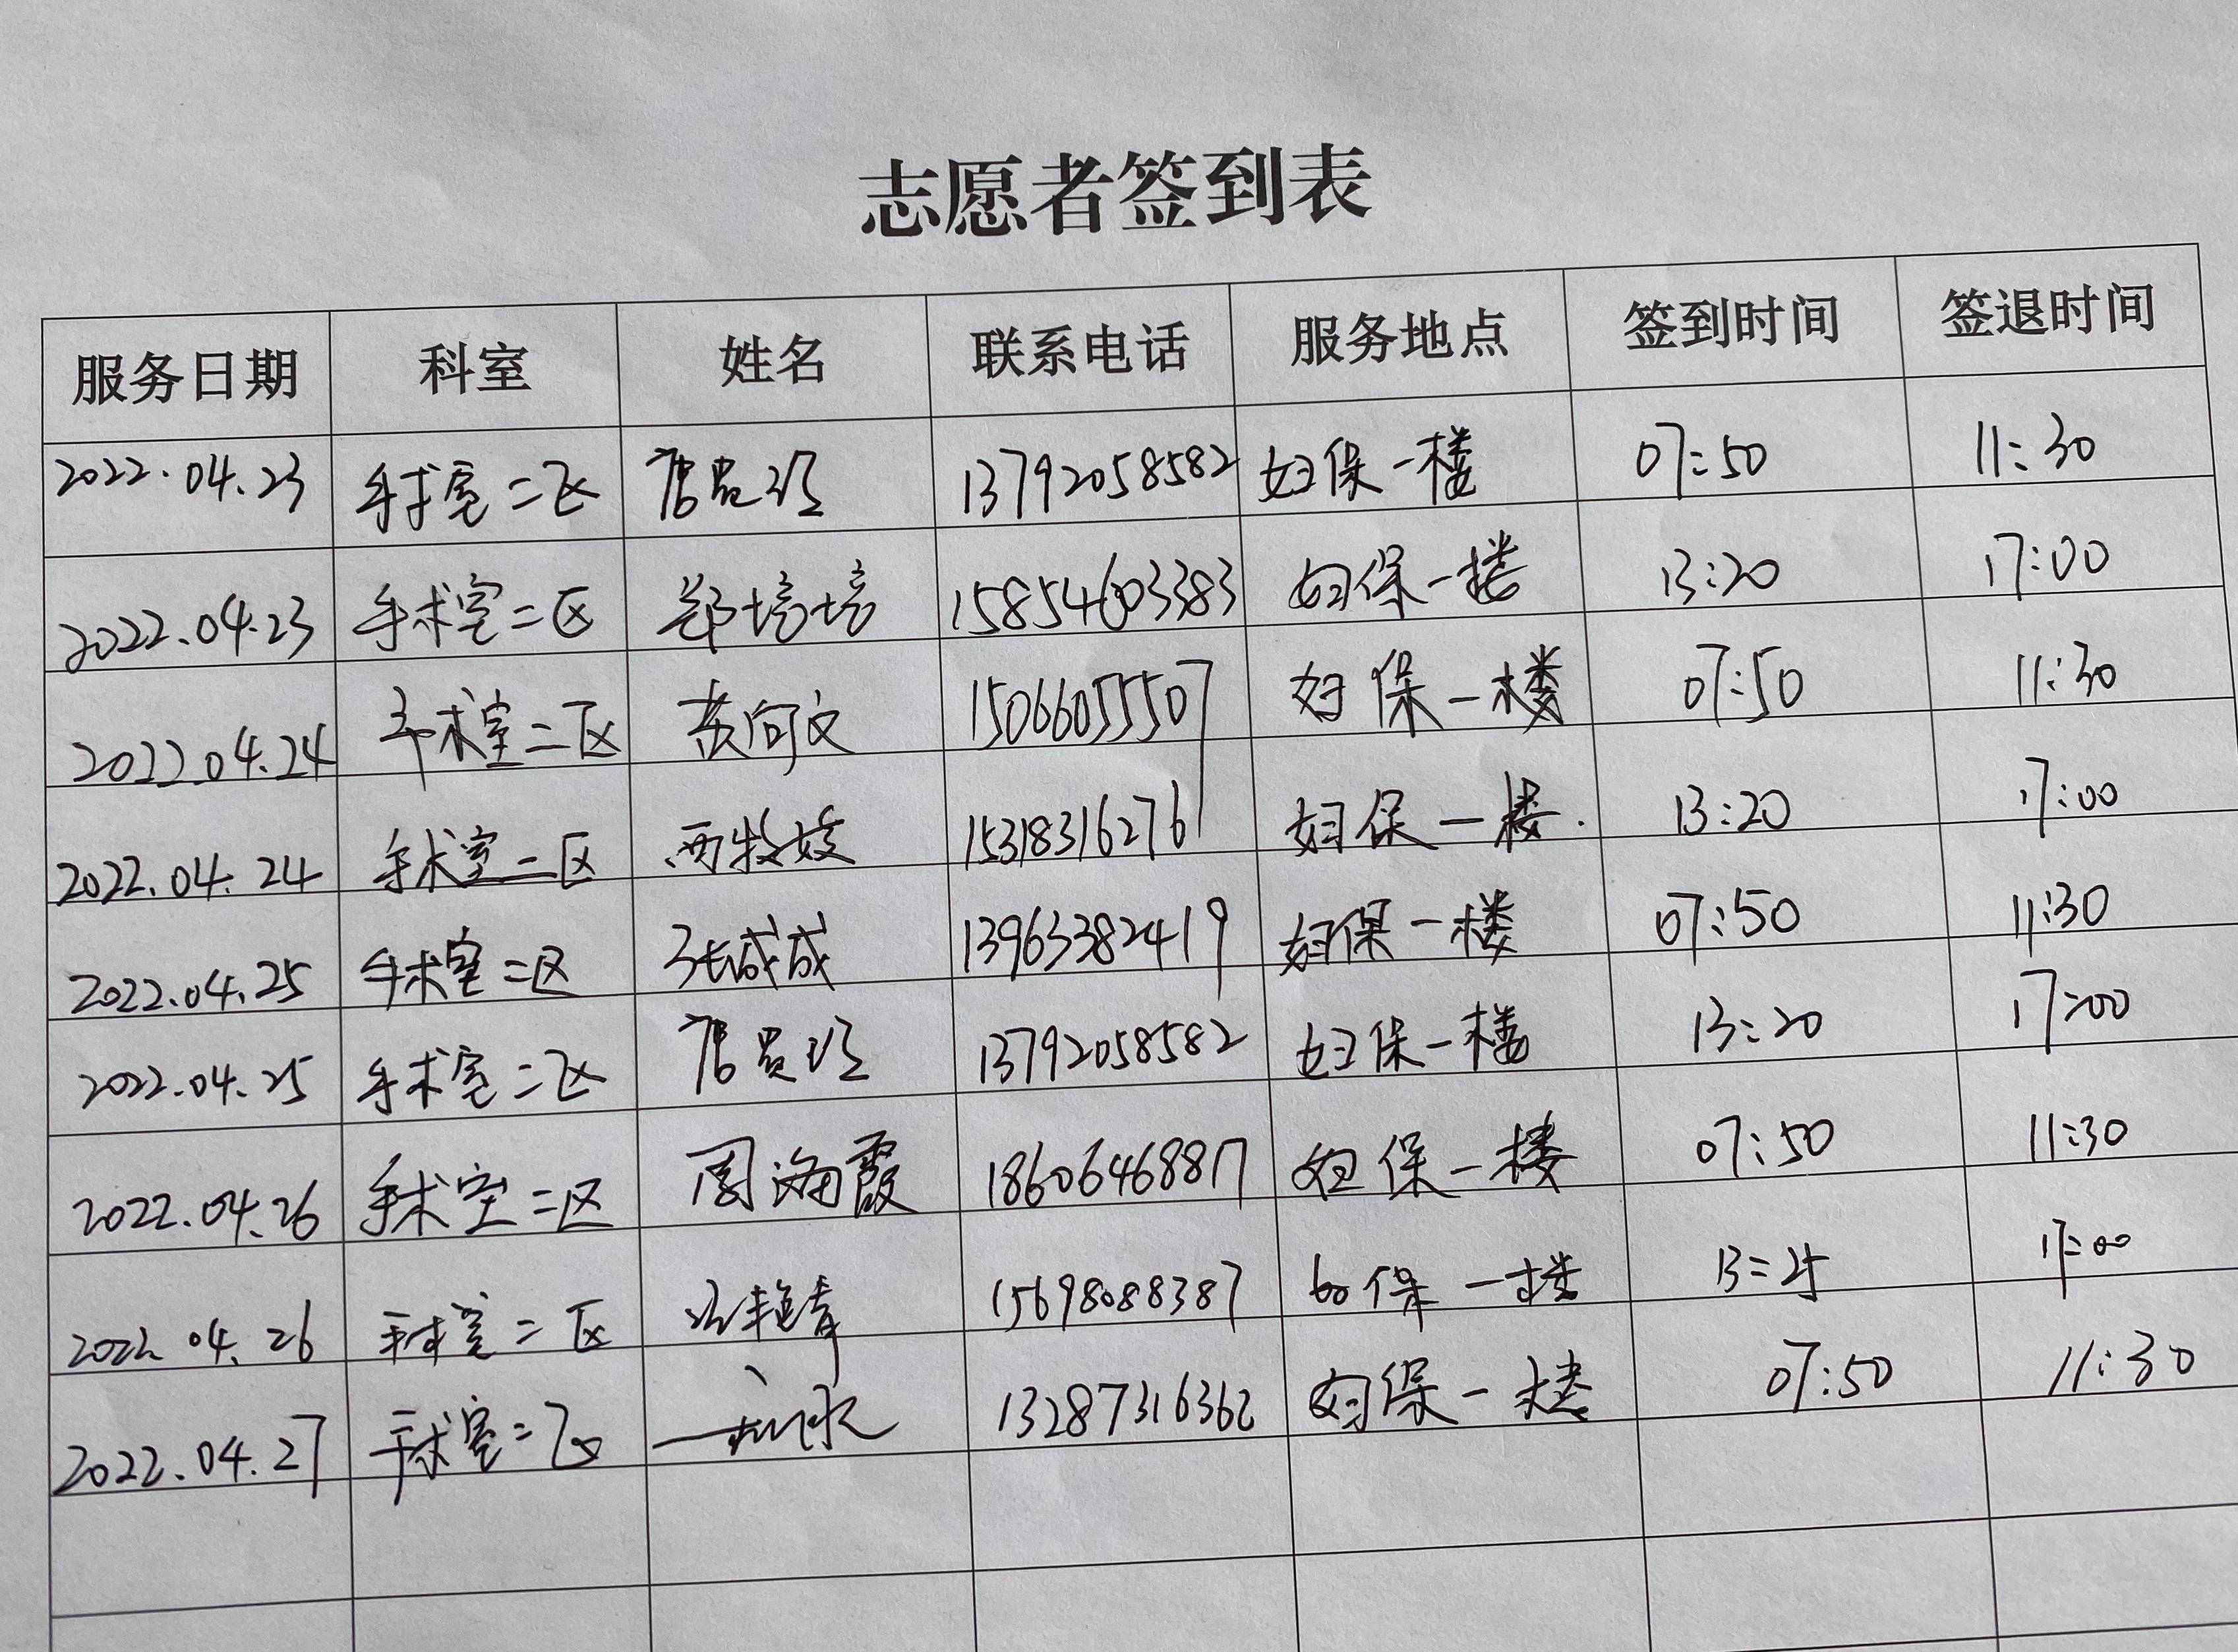 志愿者签到表
服务日期 科室 姓名 联系电话 服务地点 签到时间 签退时间
2022.04.23 手术室二区 13792058582 妇保一楼 07:50 11:30
2022.04.23 手术室二区 郑培培 15854603383 妇保一楼 13:20 17:00
2022.04.24 手术室二区 黄向文 15066055507 妇保一楼 07:50 11:30
2022.04.24 手术室二区 15318316276 妇保一楼. 13:20 17:00
2022.04.25 手术室二区 张成成 13963382419 妇保一楼 07:50 11:30
2022.04.25 手术室二区 13792058582 妇保一楼 13:20 17:00
2022.04.26 手术室二区 周海霞 18606468817 妇保一楼 07:50 11:30
2022.04.26 手术室二区 15698088387 妇保一楼 17:00
2022.04.27 手术室二区 13287316362 妇保一楼 07:50 11:30